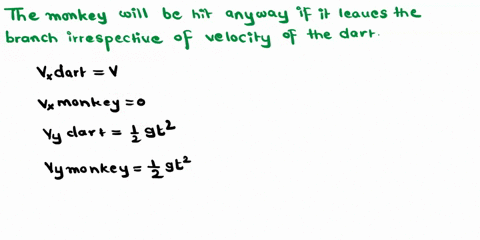 The monkey will be hit anyway if it leaves the
branch irrespective of velocity of the dart.
Vx dart = V
Vx monkey = 0
Vy dart = 1/2 gt²
Vy monkey = 1/2 gt²